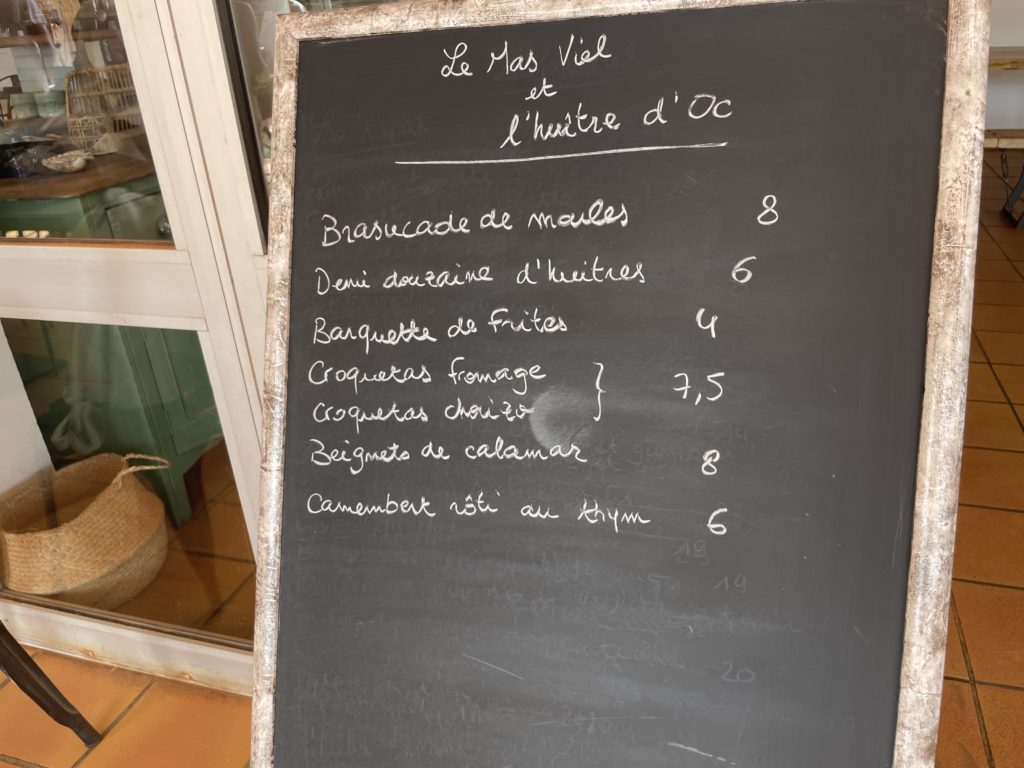 Le Mas Viel
et
l'huître d'Oc
Brasucade de moules 8
Demi douzaine d'huitres 6
Barquette de frites 4
Croquetas fromage } 7,5
Croquetas chorizo
Beignets de calamar 8
Camembert rôti au thym 6
19
19
20